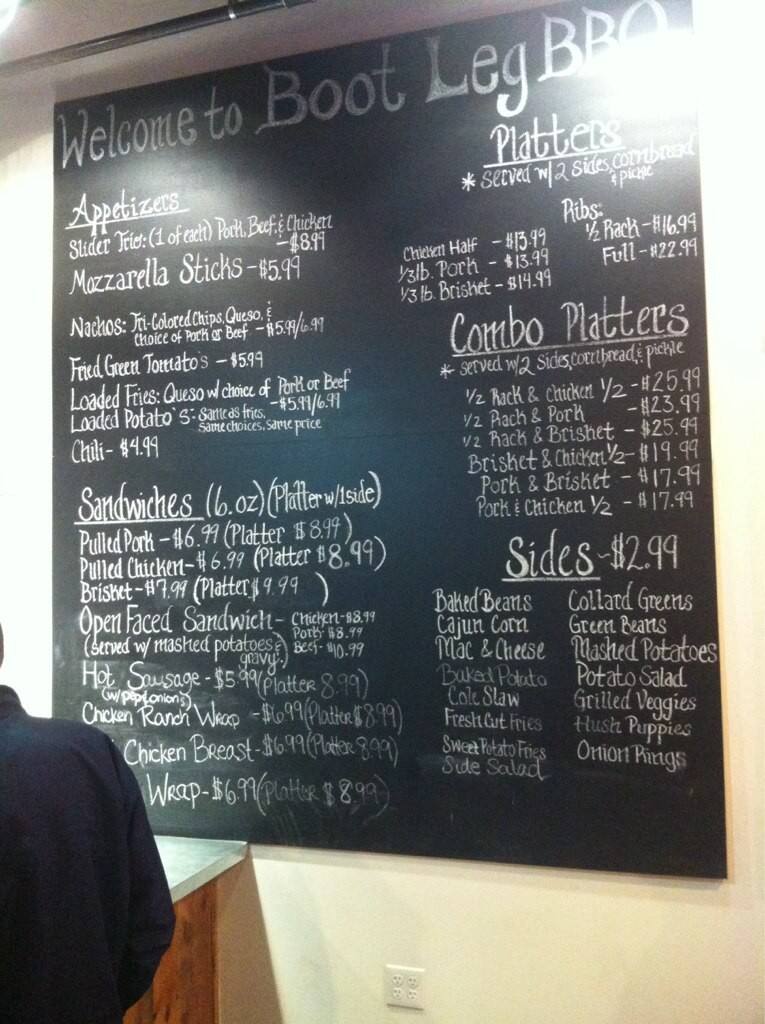 Welcome to Boot Leg BBQ
Appetizers
Slider Trio: (1 of each) Pork, Beef, & Chicken
- $8.99
Mozzarella Sticks - $5.99
Nachos: Tri-Colored Chips, Queso, &
choice of Pork or Beef - $5.99/6.99
Fried Green Tomato's - $5.99
Loaded Fries: Queso w/ choice of Pork or Beef
- $5.99/6.99
Loaded Potato's: Same as fries,
same choices, same price
Chili - $4.99
Sandwiches (6.oz) (Platter w/1side)
Pulled Pork - $6.99 (Platter $8.99)
Pulled Chicken - $6.99 (Platter $8.99)
Brisket - $7.99 (Platter $9.99)
Open Faced Sandwich - Chicken - $8.99
Pork - $8.99
(served w/ mashed potatoes & Beef - $10.99
gravy.)
Hot Sausage - $5.99 (Platter 8.99)
(w/ pep & onions)
Chicken Ranch Wrap - $6.99 (Platter $8.99)
Chicken Breast - $6.99 (Platter 8.99)
Wrap - $6.99 (Platter $8.99)
Platters
* served w/ 2 sides, cornbread
& pickle
Ribs:
1/2 Rack - $16.99
Full - $22.99
Chicken Half - $13.99
1/3 lb. Pork - $13.99
1/3 lb. Brisket - $14.99
Combo Platters
* served w/2 sides, cornbread, & pickle
1/2 Rack & Chicken 1/2 - $25.99
1/2 Rack & Pork - $23.99
1/2 Rack & Brisket - $25.99
Brisket & Chicken 1/2 - $19.99
Pork & Brisket - $17.99
Pork & Chicken 1/2 - $17.99
Sides - $2.99
Baked Beans
Cajun Corn
Mac & Cheese
Baked Potato
Cole Slaw
Fresh Cut Fries
Sweet Potato Fries
Side Salad
Collard Greens
Green Beans
Mashed Potatoes
Potato Salad
Grilled Veggies
Hush Puppies
Onion Rings